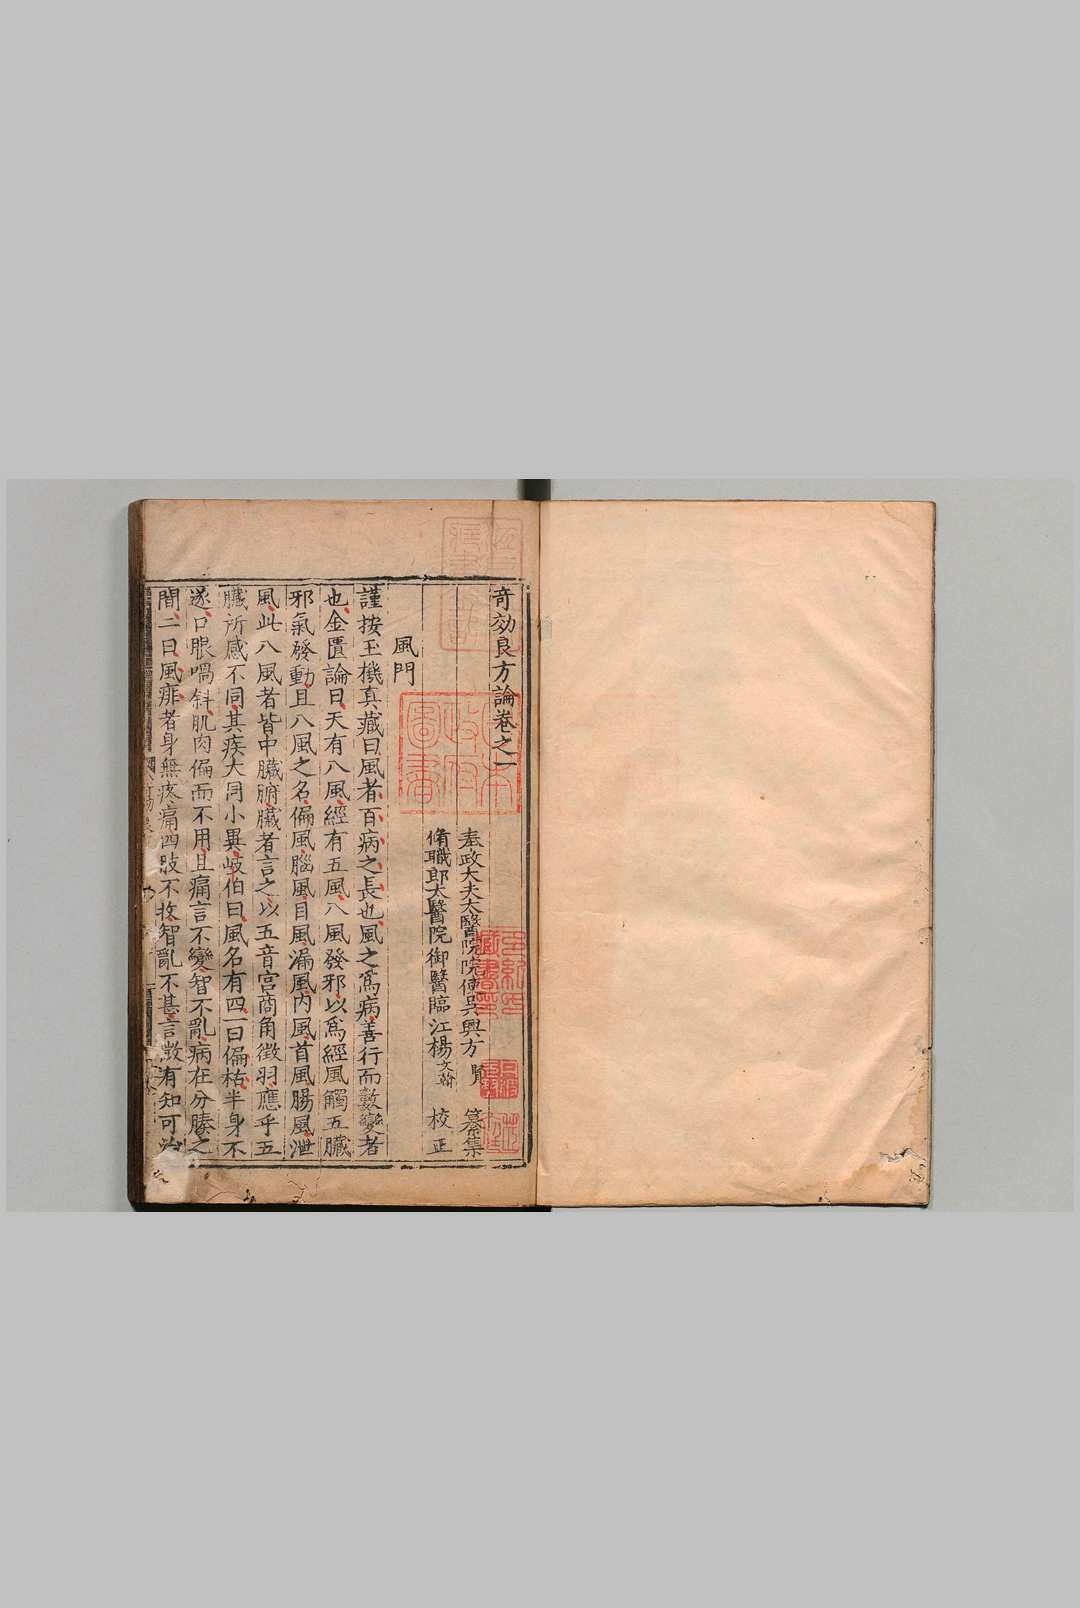 奇効良方論卷之一
奉政大夫太醫院院使吳興方 賢 纂集
脩職郎太醫院御醫臨江楊文翰 校正
風門
謹按玉機真藏曰風者百病之長也風之爲病善行而數變者
也金匱論曰天有八風經有五風八風發邪以爲經風觸五臟
邪氣發動且八風之名偏風腦風目風漏風内風首風腸風泄
風此八風者皆中臟腑臟者言之以五音宮商角徵羽應乎五
臟所感不同其疾大同小異岐伯曰風名有四一曰偏枯半身不
遂口眼喎斜肌肉偏而不用且痛言不變智不亂病在分腠之
間二曰風痱者身無疼痛四肢不收智亂不甚言微有知可治